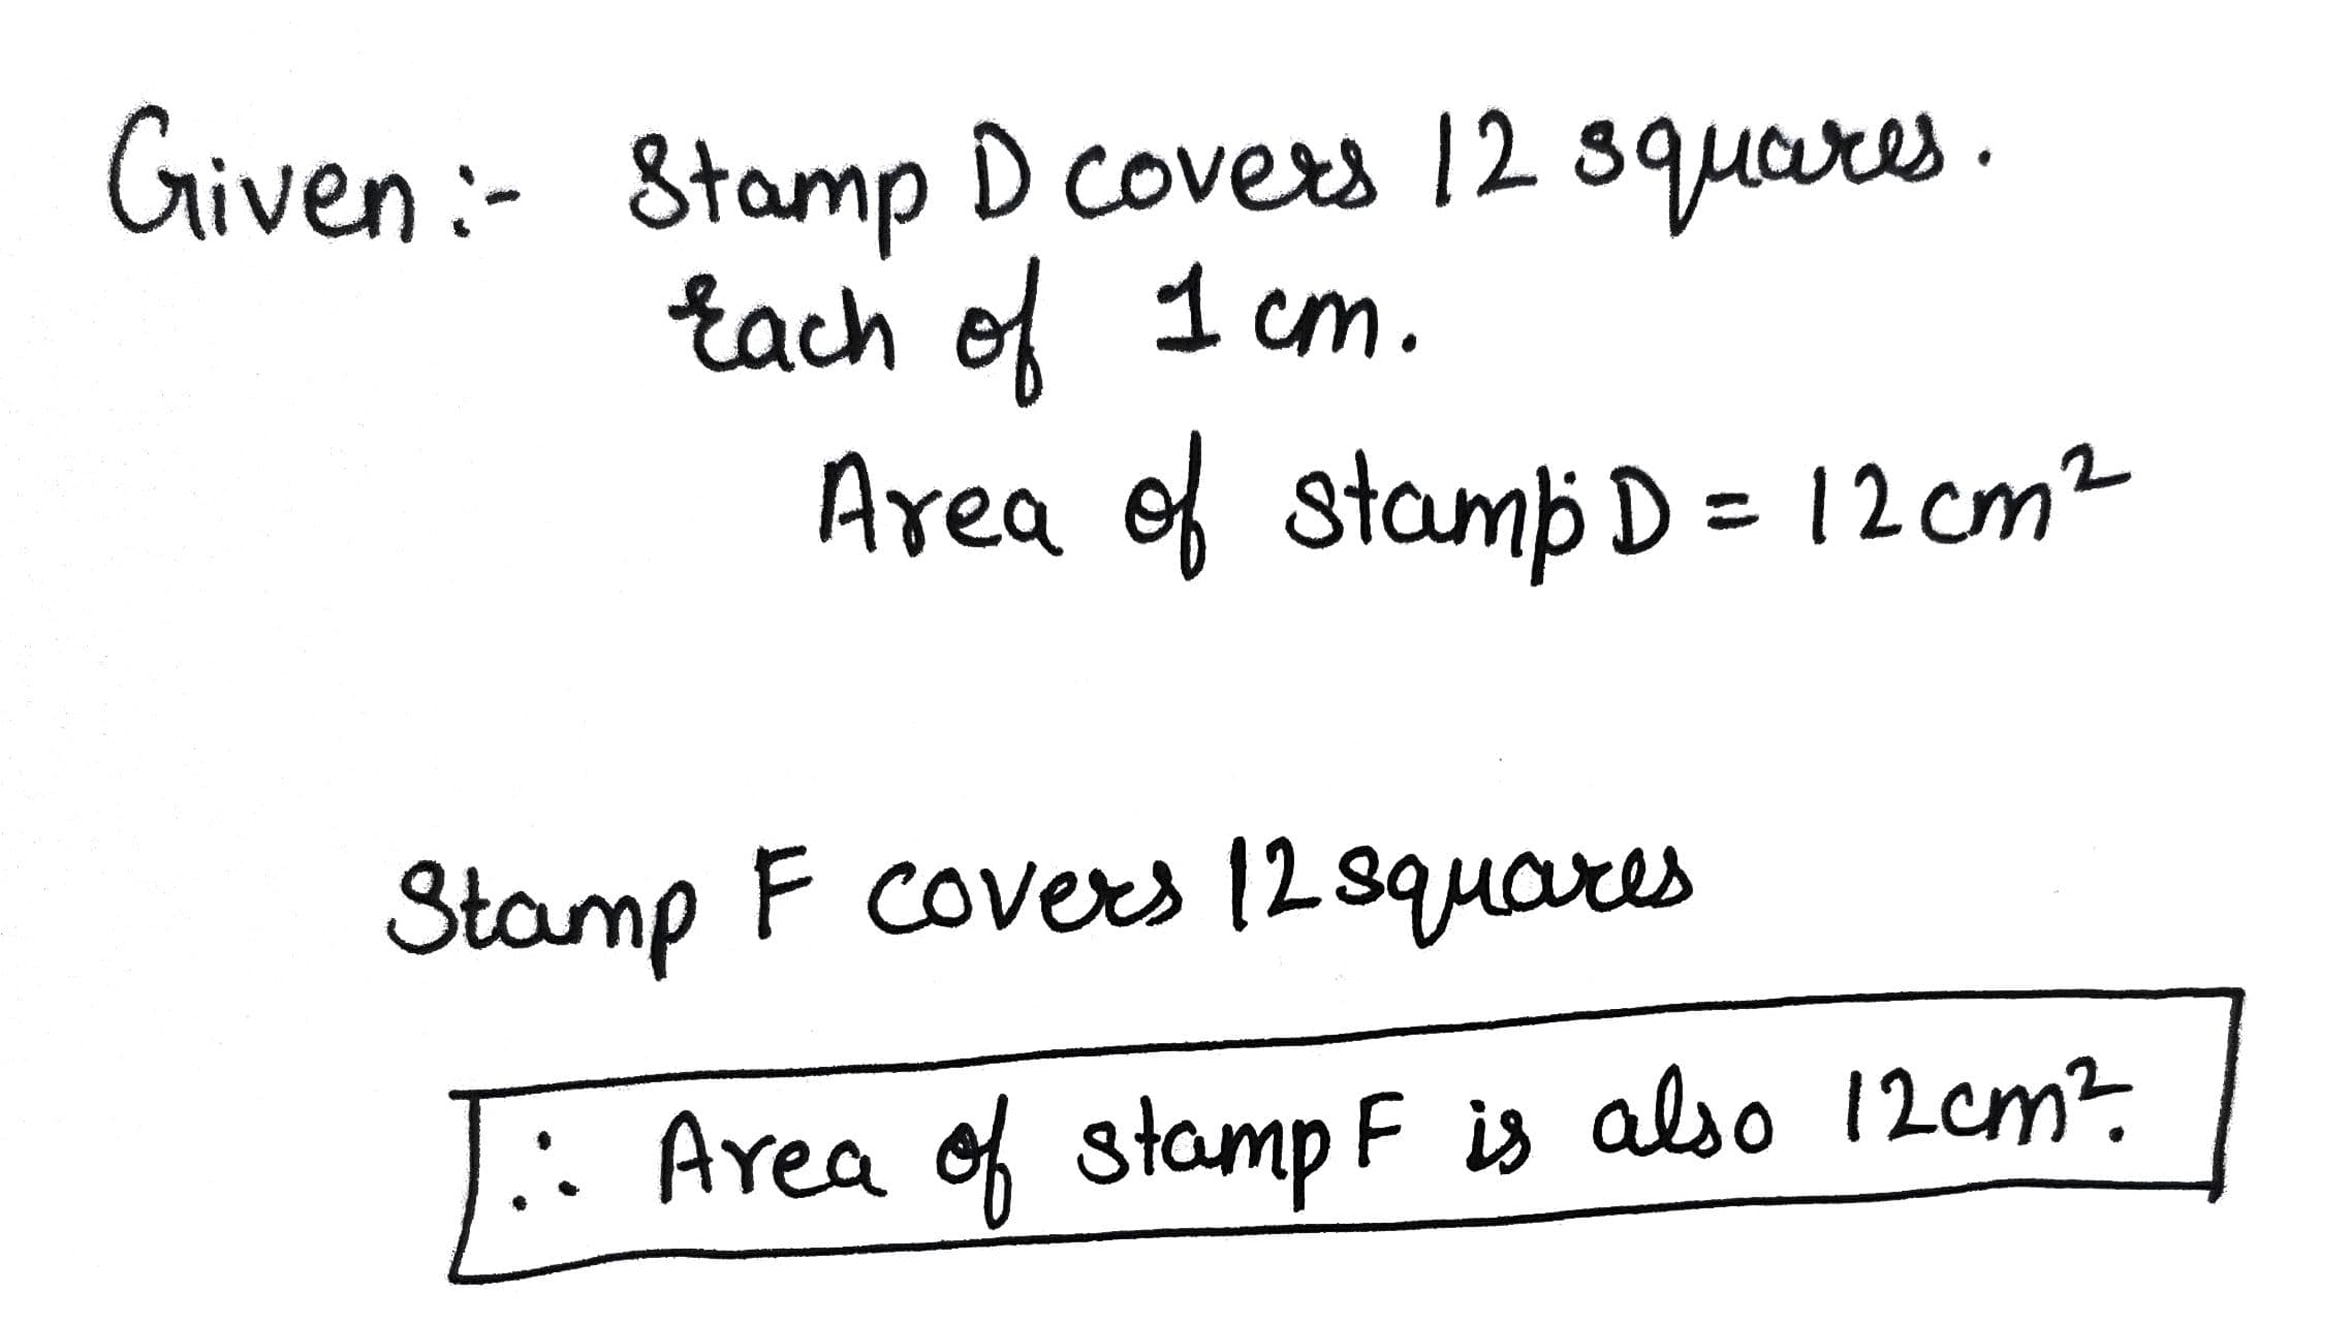 Given :- Stamp D covers 12 squares.
Each of 1 cm.
Area of stamp D = 12 cm²
Stamp F covers 12 squares
∴ Area of stamp F is also 12cm².